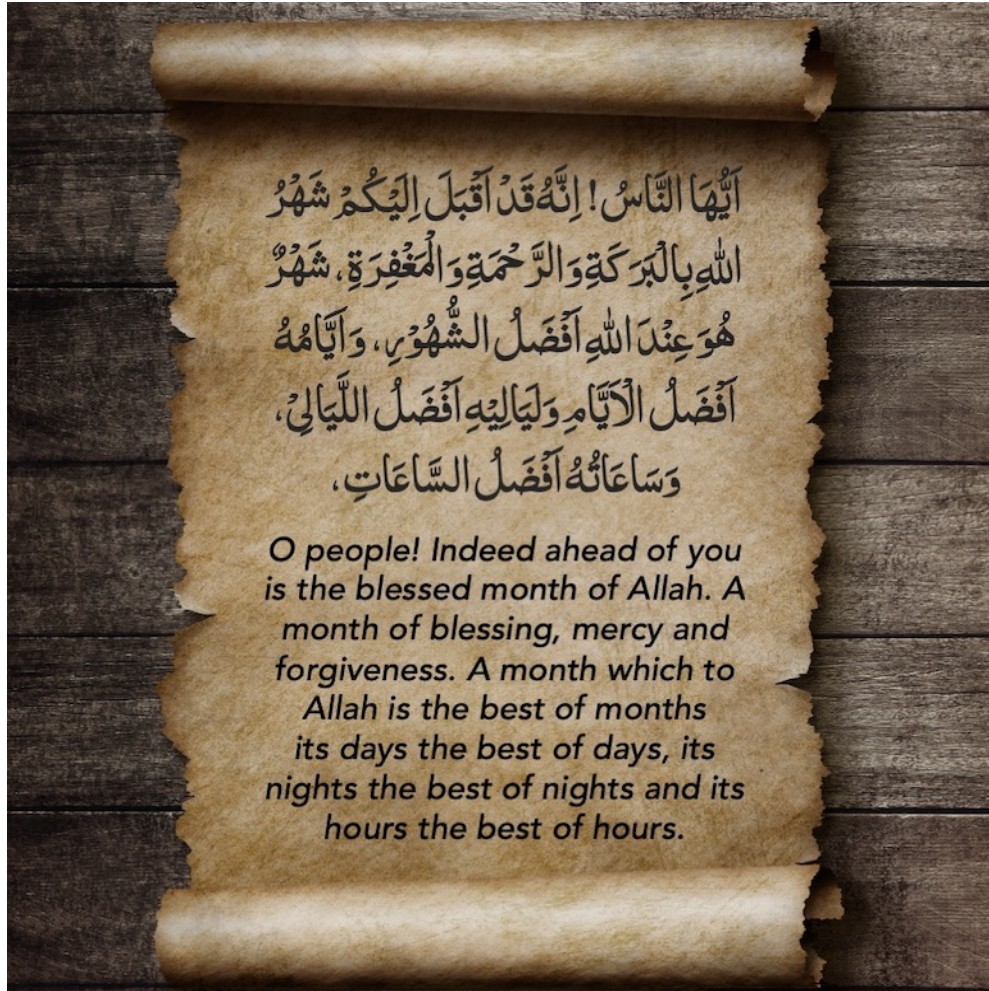 اَيُّهَا النَّاسُ! اِنَّهُ قَدْ اَقْبَلَ اِلَيْكُمْ شَهْرُ
اللهِ بِالْبَرَكَةِ وَالرَّحْمَةِ وَالْمَغْفِرَةِ، شَهْرٌ
هُوَ عِنْدَ اللهِ اَفْضَلُ الشُّهُوْرِ، وَاَيَّامُهُ
اَفْضَلُ الْاَيَّامِ وَلَيَالِيْهِ اَفْضَلُ اللَّيَالِيْ،
وَسَاعَاتُهُ اَفْضَلُ السَّاعَاتِ،
O people! Indeed ahead of you
is the blessed month of Allah. A
month of blessing, mercy and
forgiveness. A month which to
Allah is the best of months
its days the best of days, its
nights the best of nights and its
hours the best of hours.